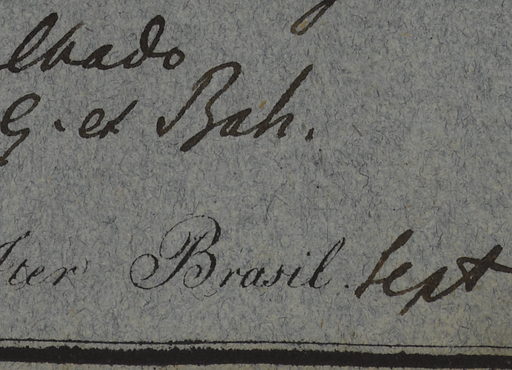 lhado
G. et Bah.
Iter Brasil. Sept